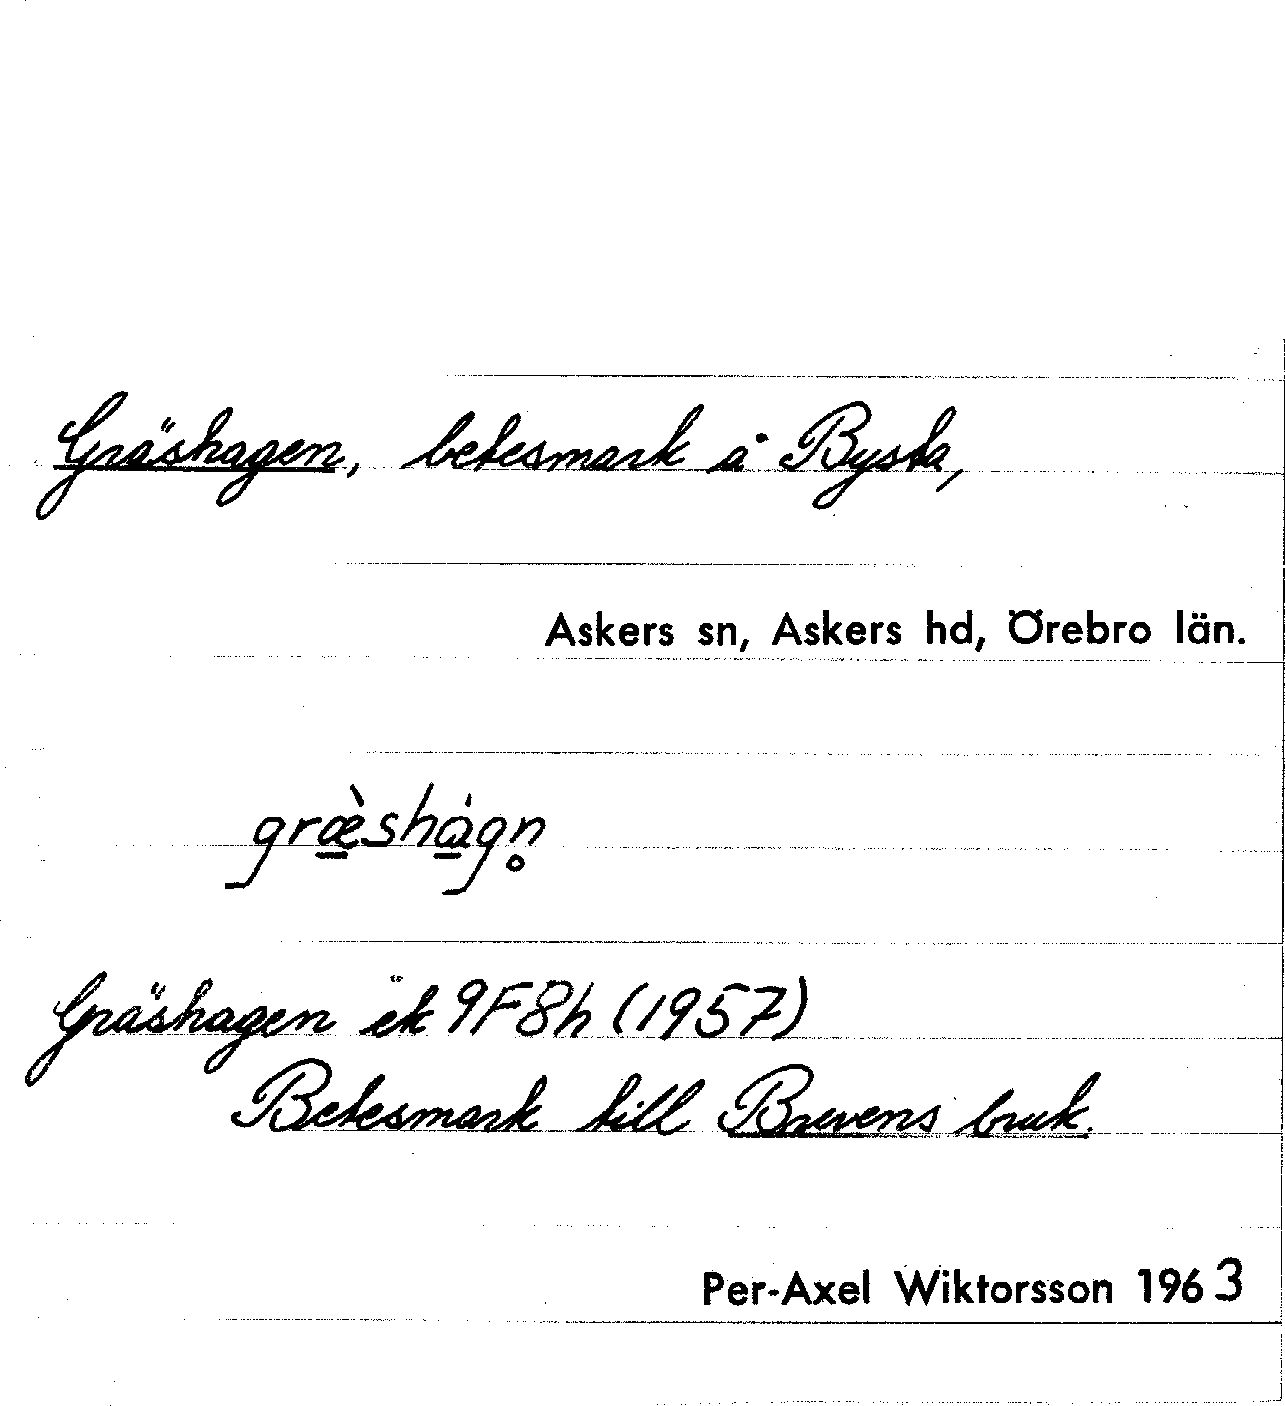 Gräshagen, betesmark å Bysta,
Askers sn, Askers hd, Örebro län.
græ̀shàgn̥
Gräshagen ëk 9F8h (1957)
Betesmark till Brevens bruk.
Per-Axel Wiktorsson 1963